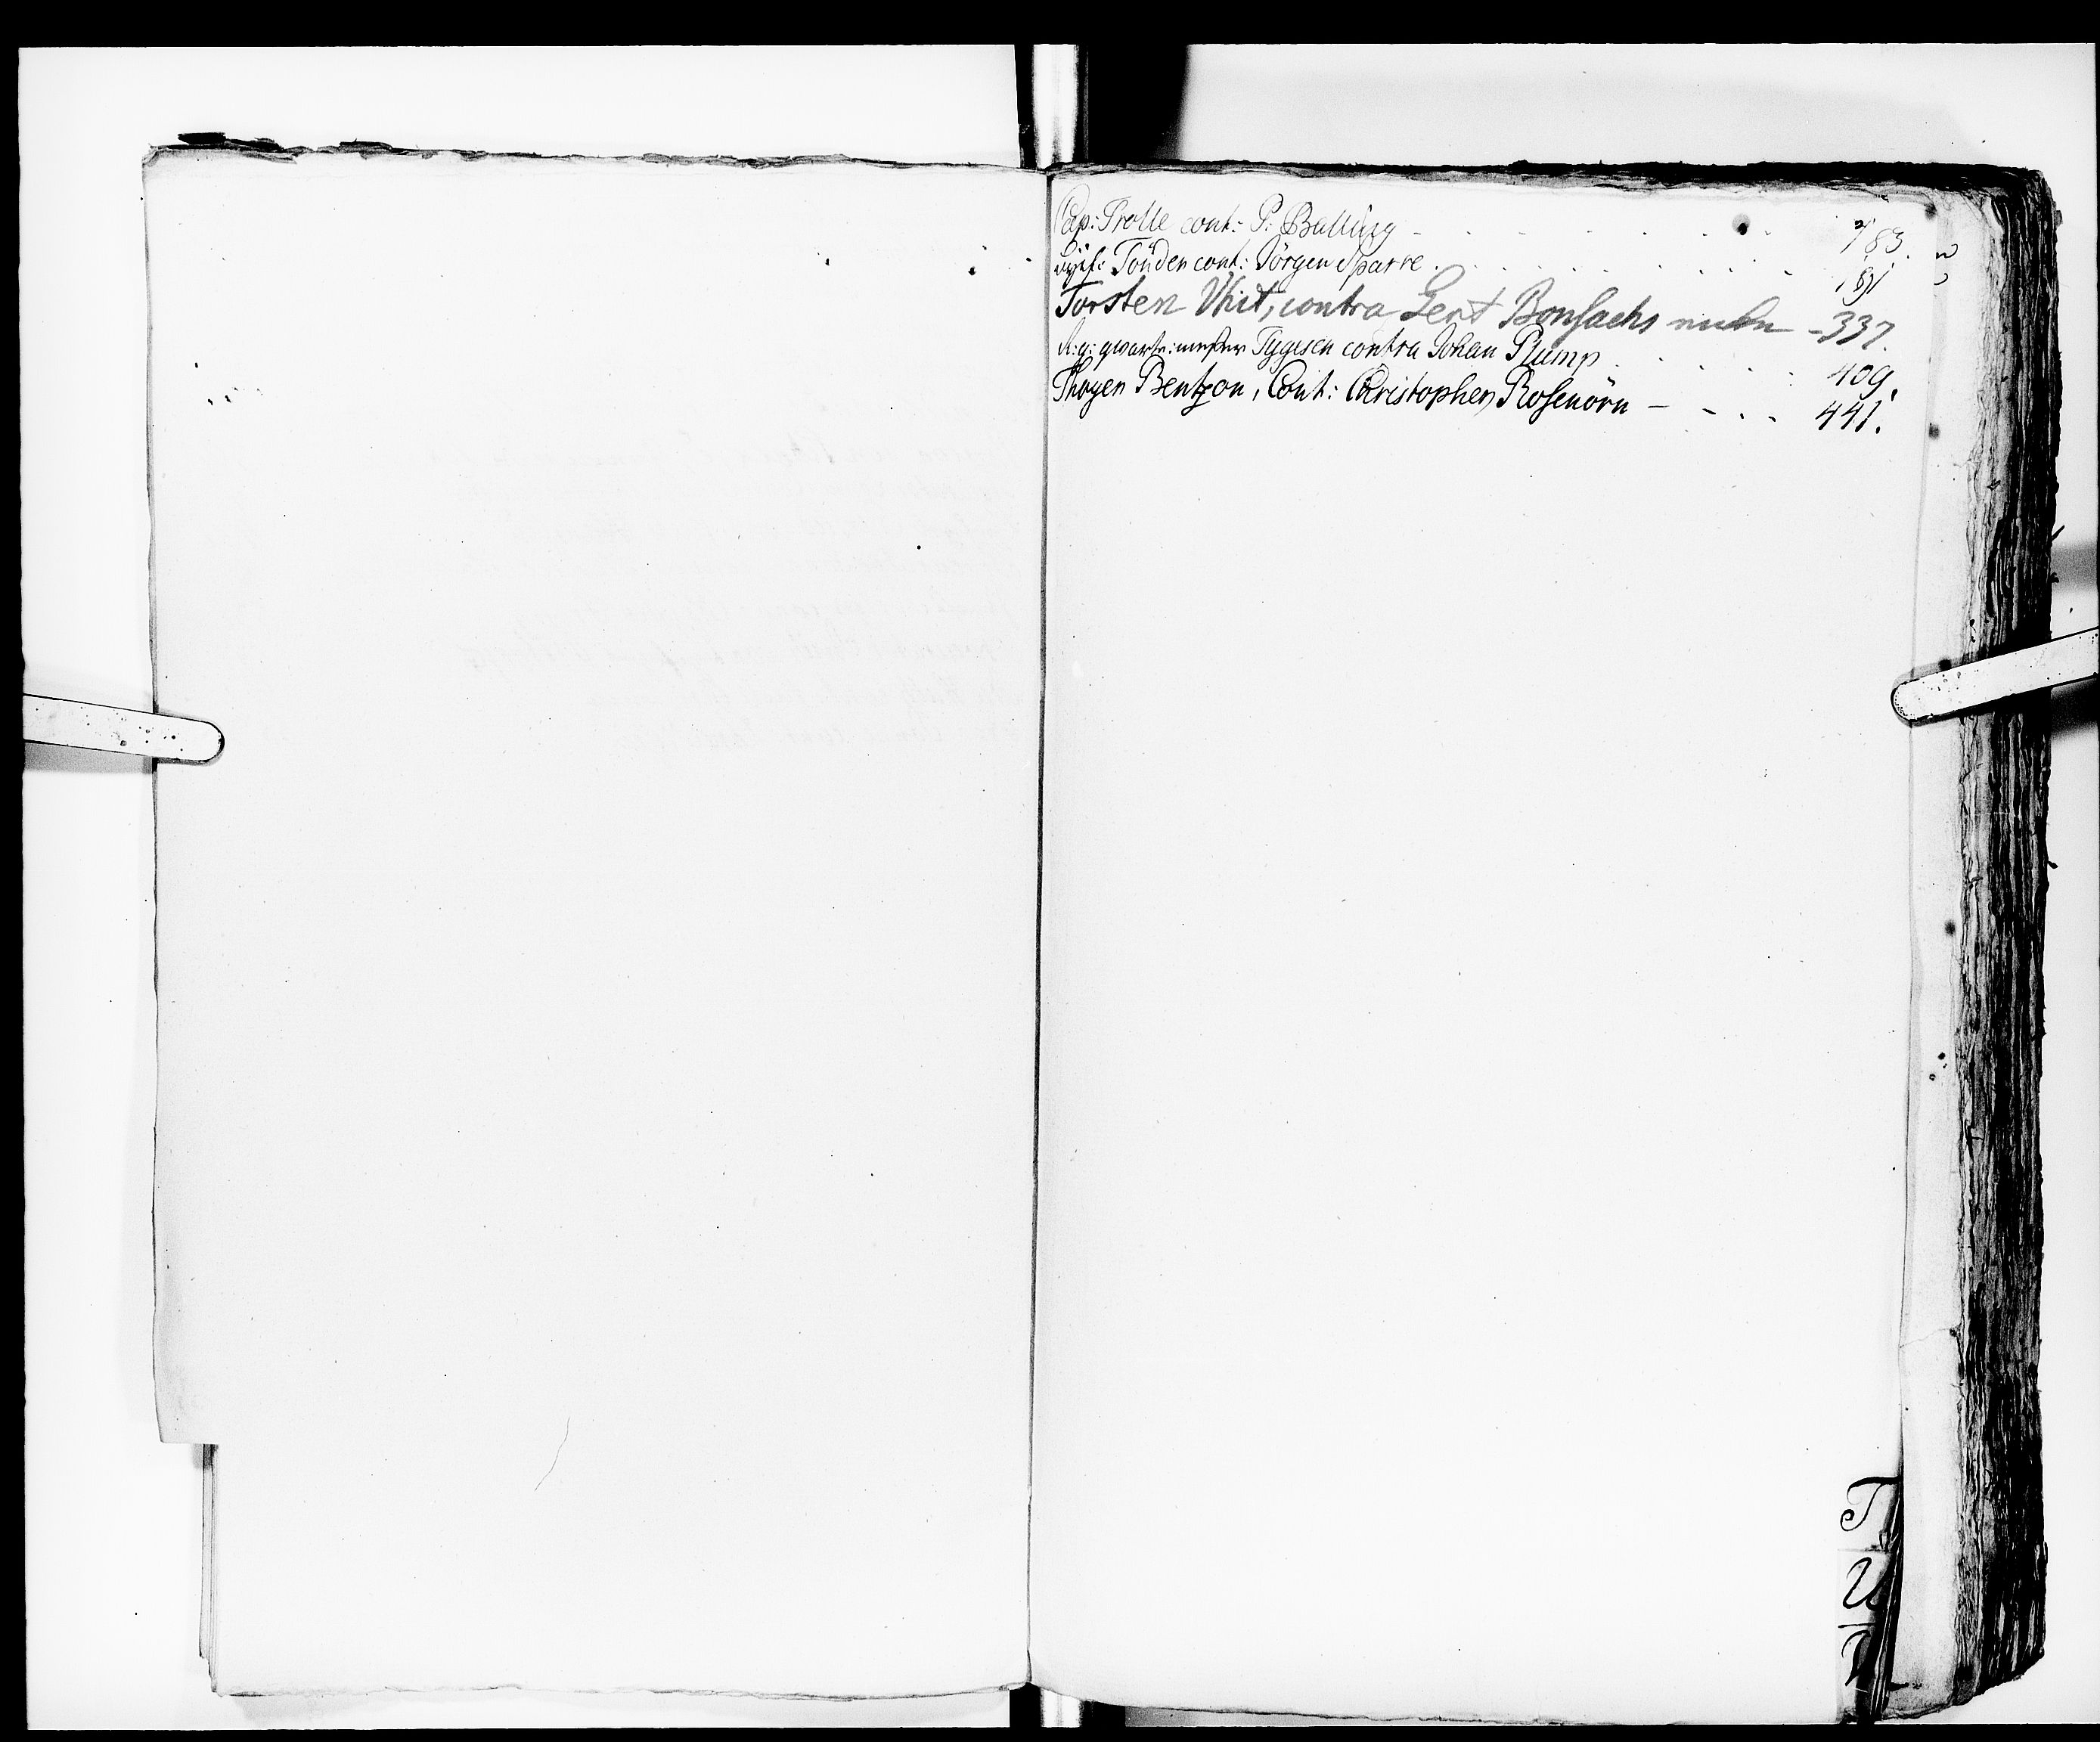 Cap: Trolle cont: P: Balling - 183.
Tønder cont: Jörgen Sparre. 191
Torsten Whit, contra Gert Bonsachs - 337.
Tygesen contra Johan Plump 409.
Thogen Bentzon, Cont: Christopher Rosenörn - - 441.
T
U